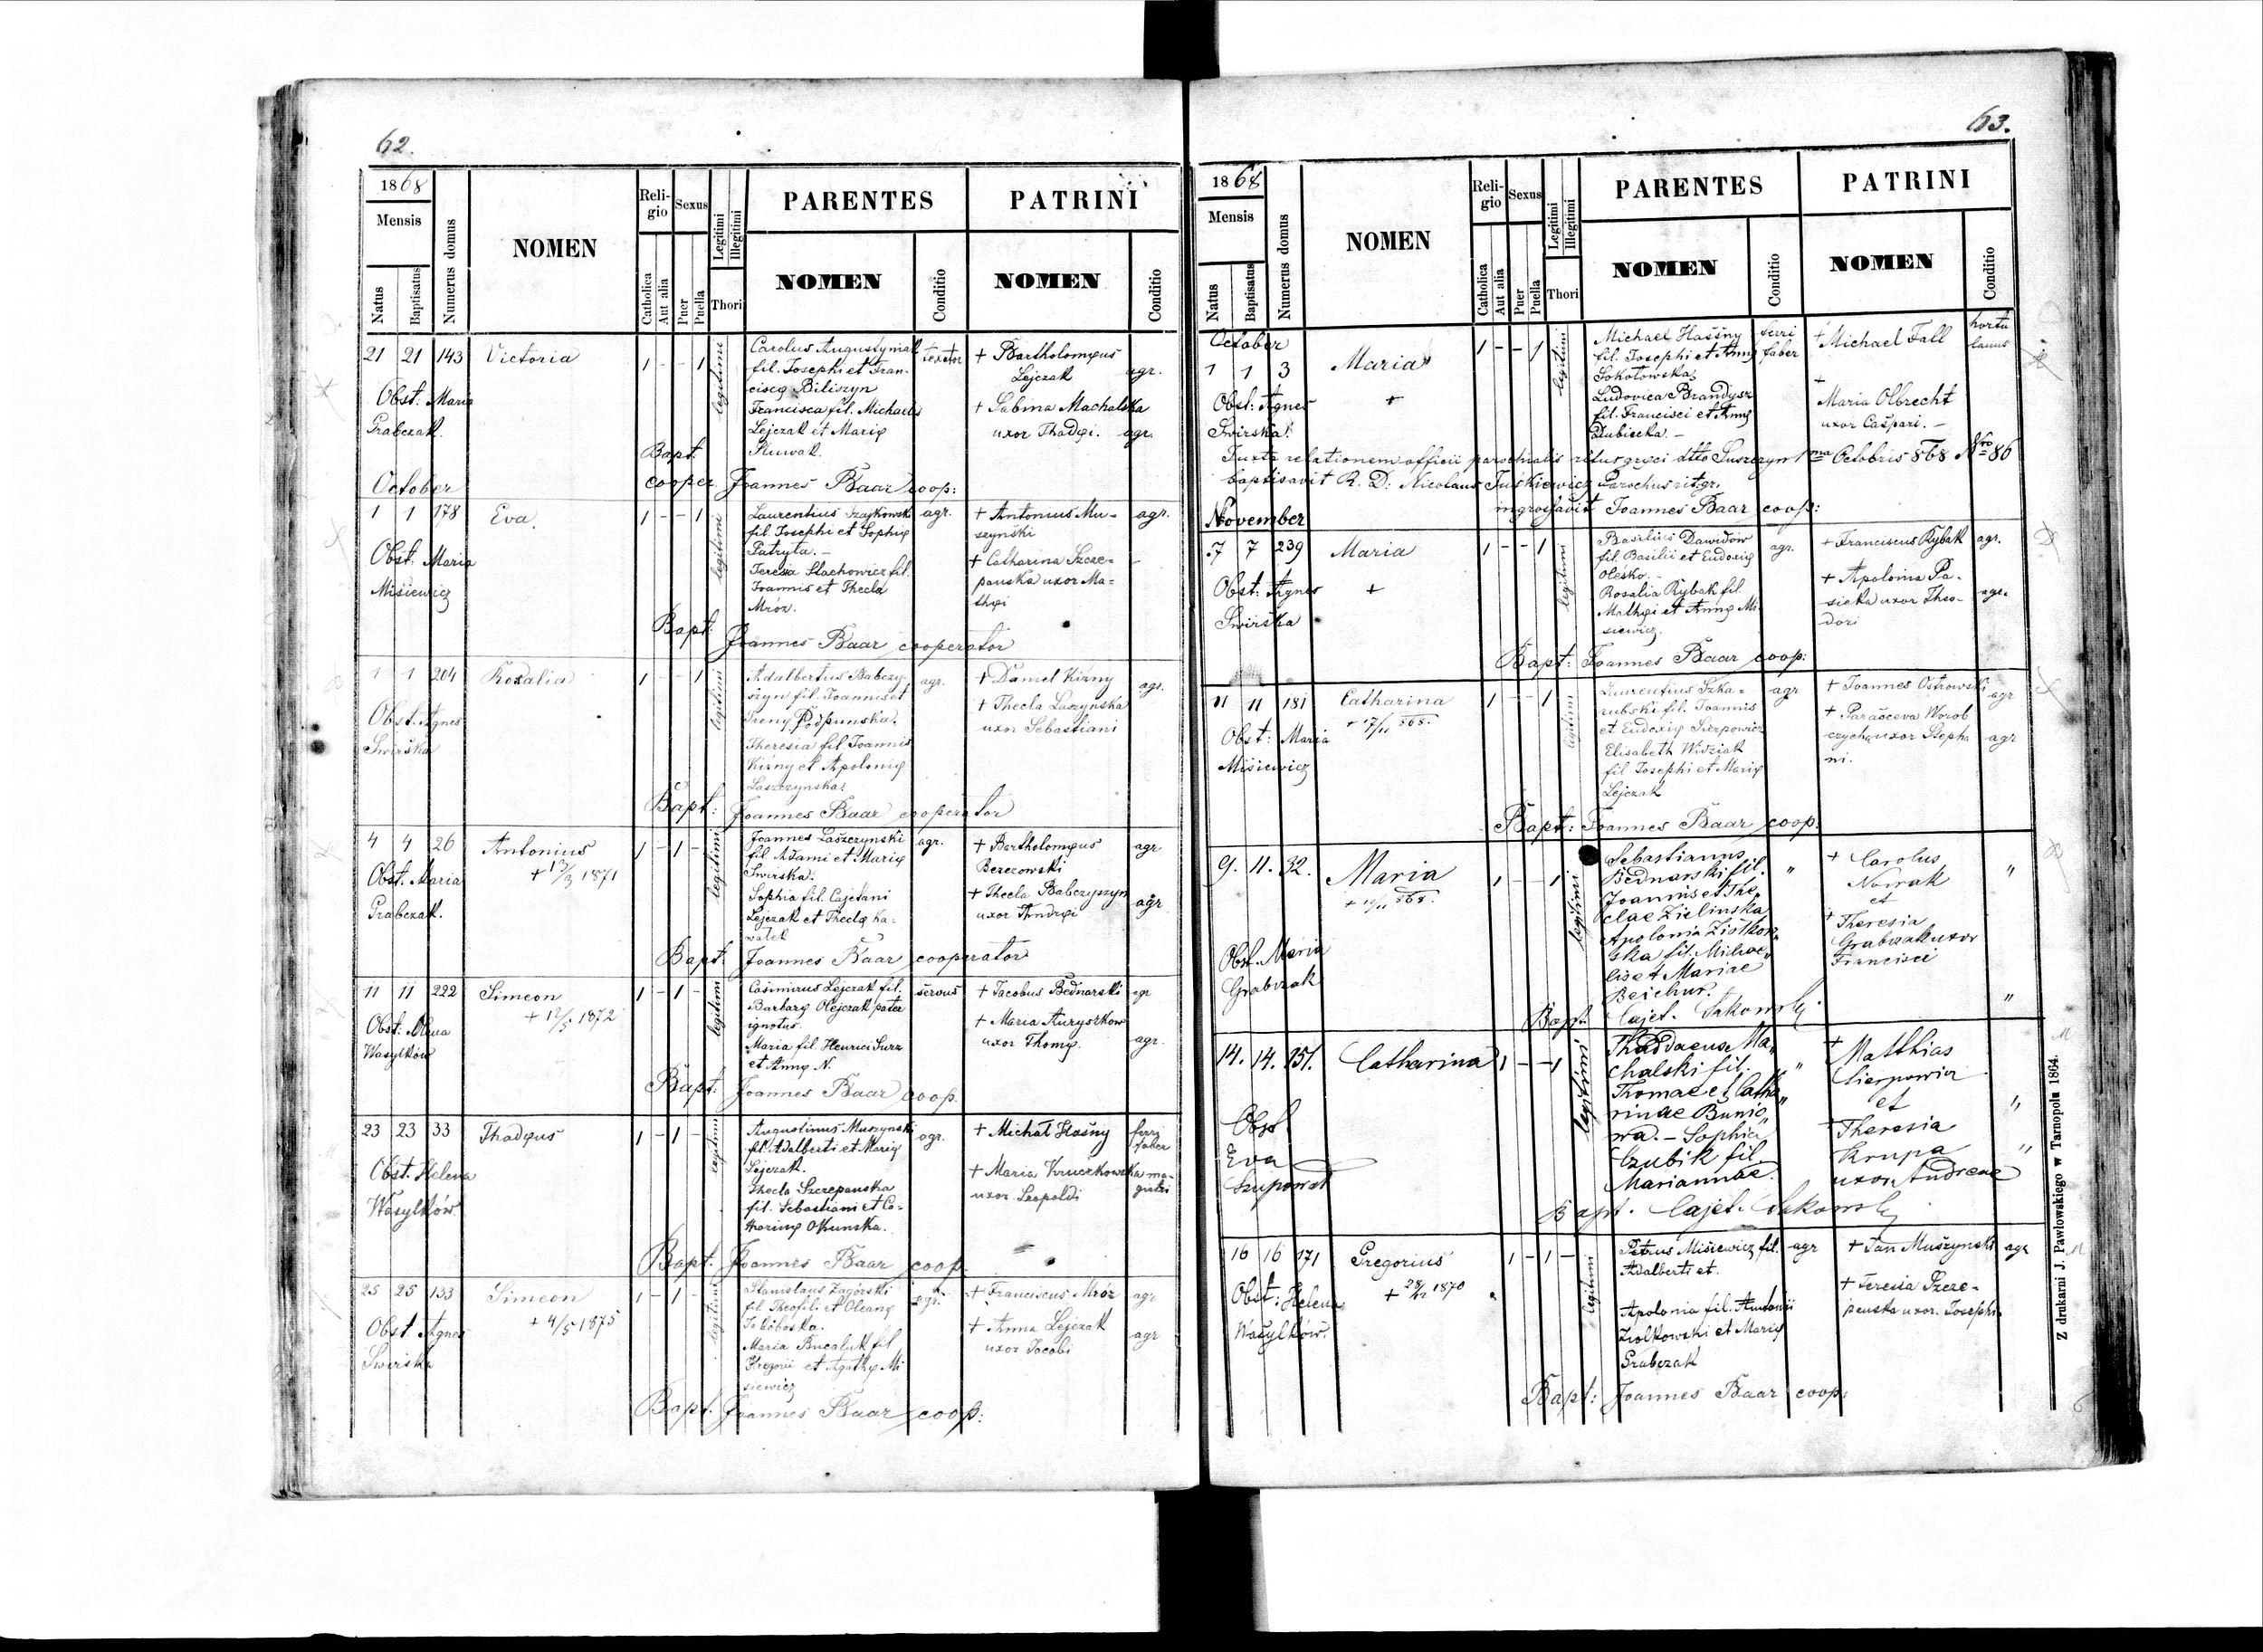 62.
1868
Mensis
Natus
Baptisatus
Numerus domus
NOMEN
Reli-
gio
Catholica
Aut alia
Sexus
Puer
Puella
Legitimi
Illegitimi
Thori
PARENTES
NOMEN
Conditio
PATRINI
NOMEN
Conditio
21 21 143 Victoria
1 - - 1 legitimi
Obst. Maria
Grabczak.
Carolus Augustyniak
fil. Josephi et Fran-
ciscę Biliszyn
Francisca fil. Michaelis
Lejczak et Marię
textor
+ Bartholomęus
Lejczak agr.
+ Sabina Machalska
uxor Thadęi. agr.
Bapt.
cooper. Joannes Baar coop:
October
1 1 178 Eva.
1 - - 1 legitimi
Obst. Maria
Misiewicz
Laurentius Szajkowski
fil. Josephi et Sophię
Patryta. -
Teresia Stachowicz fil.
Joannis et Thecla
Mróz.
agr.
+ Antonius Mu-
szyński
agr.
+ Catharina Szcze-
panska uxor Ma-
thęi
Bapt: Joannes Baar cooperator
1 1 204 Rozalia
1 - - 1 legitimi
Obst. Agnes
Swirska
Adalbertus Babczy-
szyn fil. Joannis et
Irenę Podpunska.
Theresia fil. Joannis
Kiżny et Apolonię
Laszczynska
agr.
+ Daniel Kiżny
agr.
+ Thecla Laszynska
uxor Sebastiani
Bapt: Joannes Baar cooperator
4 4 26 Antonius
+ 13/3 1871
1 - 1 - legitimi
Obst. Maria
Grabczak.
Joannes Laszczynski
fil Adami et Marię
Swirska.
Sophia fil. Cajetani
Lejczak et Theclę Ka-
wałek
agr.
+ Bartholomęus
Berezowski
agr
+ Thecla Babczyszyn
uxor Andręi
agr
Bapt: Joannes Baar cooperator
11 11 222 Simeon
+ 12/5 1872
1 - 1 - legitimi
Obst. Anna
Wasylków
Casimirus Lejczak fil.
Barbarę Olejczak pater
ignotus.
Maria fil. Henrici Surz
et Annę N.
servus
+ Jacobus Bednarski
agr
+ Maria Kuryszkow
uxor Thomę.
agr.
Bapt: Joannes Baar coop.
23 23 33 Thadęus
1 - 1 - legitimi
Obst. Helena
Wasylków
Augustinus Muszynski
fil. Adalberti et Marię
Lejczak.
Thecla Szczepanska
fil. Sebastiani et Ca-
tharinę Okunska.
agr.
+ Michał Hośny
ferri
faber
+ Maria Kruczkowska ma-
gistri
uxor Leopoldi
Bapt. Joannes Baar coop.
25 25 133 Simeon
+ 4/5 1875
1 - 1 - legitimi
Obst. Agnes
Swirska
Stanislaus Zagórski
fil Theofili et Oleanę
Maria Bucaluk fil
Gregorii et Agathę Mi
siewicz
agr.
+ Franciscus Mróz
agr
+ Anna Lejczak
uxor Jacobi
agr
Bapt. Joannes Baar coop:
63.
1868
Mensis
Natus
Baptisatus
Numerus domus
NOMEN
Reli-
gio
Catholica
Aut alia
Sexus
Puer
Puella
Legitimi
Illegitimi
Thori
PARENTES
NOMEN
Conditio
PATRINI
NOMEN
Conditio
October
1 1 3 Maria
+
1 - - 1 legitimi
Obst: Agnes
Swirska.
Michael Haśny
fil. Josephi et Annę
Sokołowska
Ludovica Brandysz
fil. Francisci et Annę
Dubiecka. -
ferri
faber
+ Michael Fall
hortu
lanus
+
Maria Olbrecht
uxor Caspari. -
Juxta relationem officii parochialis ritus gręci dtto Suszczyn 1ma Octobris 868 Nro 86
baptisavit R. D: Nicolaus Juśkiewicz Parochus rit. gr.
ingrossavit Joannes Baar coop:
November
7 7 239 Maria
+
1 - - 1 legitimi
Obst: Agnes
Swirska
Basilius Dawidow
fil. Basilii et Eudoxię
Olesko.
Rosalia Rybak fil.
Mathęi et Annę Mi
siewicz.
agr.
+ Franciscus Rybak
agr.
+ Apolonia Pa-
sieka uxor Theo-
dori
agr.
Bapt: Joannes Baar coop:
11 11 181 Catharina
+ 17/11 868.
1 - - 1 legitimi
Obst: Maria
Misiewicz
Laurentius Szka-
rubski fil. Joannis
et Eudoxię Sierpowicz
Elisabeth Widziak
fil Josephi et Marię
Lejczak
agr
+ Joannes Ostrowski
agr
+ Parasceva Worob
czycha uxor Stepha
ni.
agr
Bapt: Joannes Baar coop.
9. 11. 32. Maria
+ 10/11 868.
1 - - 1 legitimi
Obst. Maria
Grabczak
Sebastianus
Bednarski fil.
Joannis et The„
clae Zielinska
Apolonia Ziółkow„
ska fil. Michae„
lis et Mariae
Bejchur.
"
+ Carolus
Nowak
et
+ Theresia
Grabczak uxor
Francisci
"
"
Bapt. Cajet. Sakowski
14. 14. 151. Catharina
1 - - 1 legitimi
Obst
Eva
Szupowat
Thaddaeus Ma„
chalski fil.
Thomae et Catha„
rinae Bunio„
wa. - Sophia
Czubik fil.
Mariannae.
"
+ Matthias
Sierpowicz
et
+ Theresia
Krupa
uxor Andreae
"
"
Bapt. Cajet. Sakowski
16 16 171 Gregorius
+ 28/12 1870
1 - 1 - legitimi
Obst: Helena
Wasylków.
Petrus Misiewicz fil.
Adalberti et.
Apolonia fil. Antonii
Ziolkowski et Marię
Grabczak
agr
+ Jan Muszynski
agr
+ Teresia Szcze-
panska uxor. Josephi
Bapt: Joannes Baar coop:
Z drukarni J. Pawłowskiego w Tarnopolu 1864.